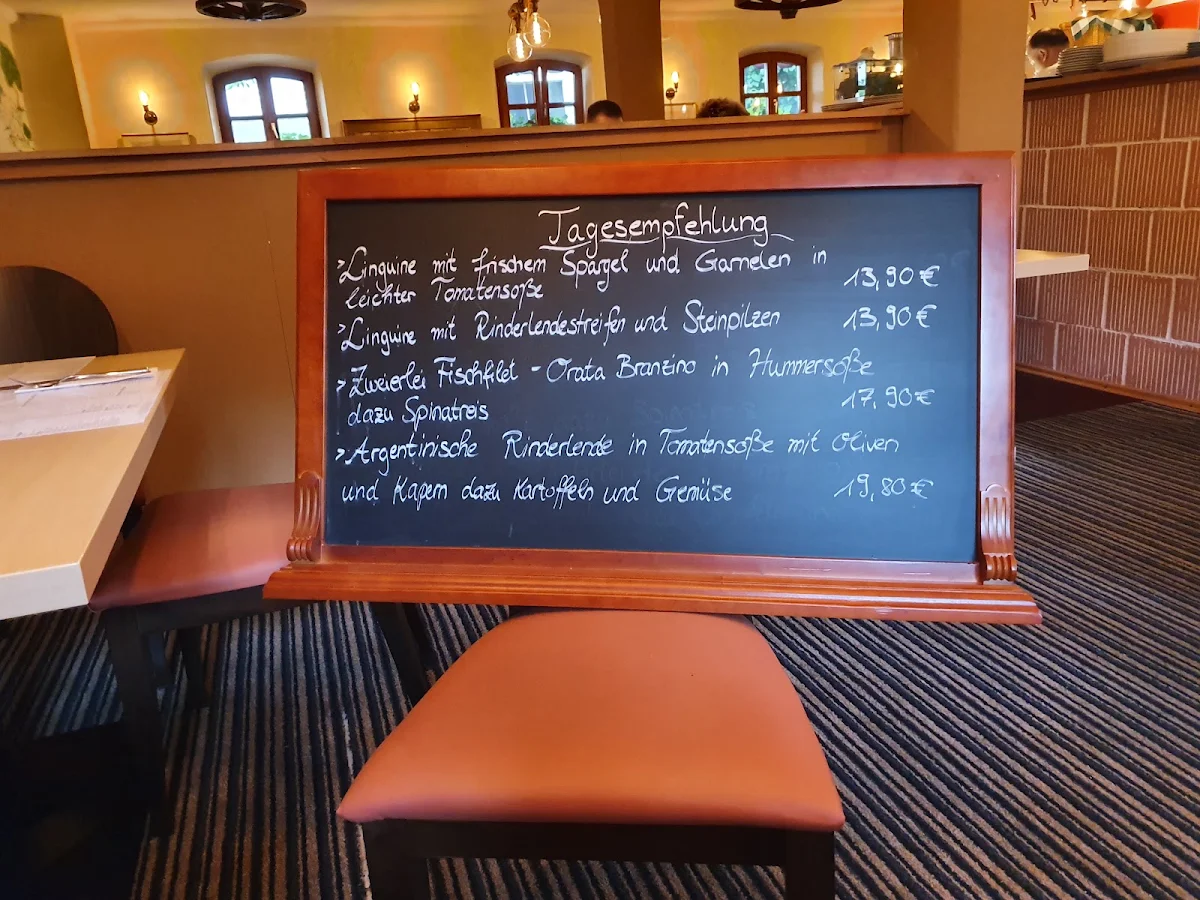 Tagesempfehlung
>Linguine mit frischem Spargel und Garnelen in
leichter Tomatensoße 13,90 €
>Linguine mit Rinderlendestreifen und Steinpilzen 13,90 €
>Zweierlei Fischfilet - Orata Branzino in Hummersoße
dazu Spinatreis 17,90 €
>Argentinische Rinderlende in Tomatensoße mit Oliven
und Kapern dazu Kartoffeln und Gemüse 19,80 €